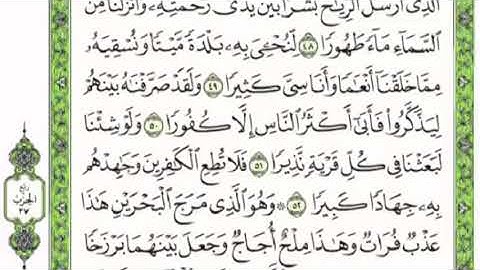 الَّذِي أَرْسَلَ الرِّيَاحَ بُشْرًا بَيْنَ يَدَيْ رَحْمَتِهِ وَأَنزَلْنَا مِنَ
السَّمَاءِ مَاءً طَهُورًا ٤٨ لِنُحْيِيَ بِهِ بَلْدَةً مَّيْتًا وَنُسْقِيَهُ
مِمَّا خَلَقْنَا أَنْعَامًا وَأَنَاسِيَّ كَثِيرًا ٤٩ وَلَقَدْ صَرَّفْنَاهُ بَيْنَهُمْ
لِيَذَّكَّرُوا فَأَبَىٰ أَكْثَرُ النَّاسِ إِلَّا كُفُورًا ٥٠ وَلَوْ شِئْنَا
لَبَعَثْنَا فِي كُلِّ قَرْيَةٍ نَّذِيرًا ٥١ فَلَا تُطِعِ الْكَافِرِينَ وَجَاهِدْهُم
بِهِ جِهَادًا كَبِيرًا ٥٢ ۞ وَهُوَ الَّذِي مَرَجَ الْبَحْرَيْنِ هَٰذَا
عَذْبٌ فُرَاتٌ وَهَٰذَا مِلْحٌ أُجَاجٌ وَجَعَلَ بَيْنَهُمَا بَرْزَخًا
ربع
الحزب
٣٧